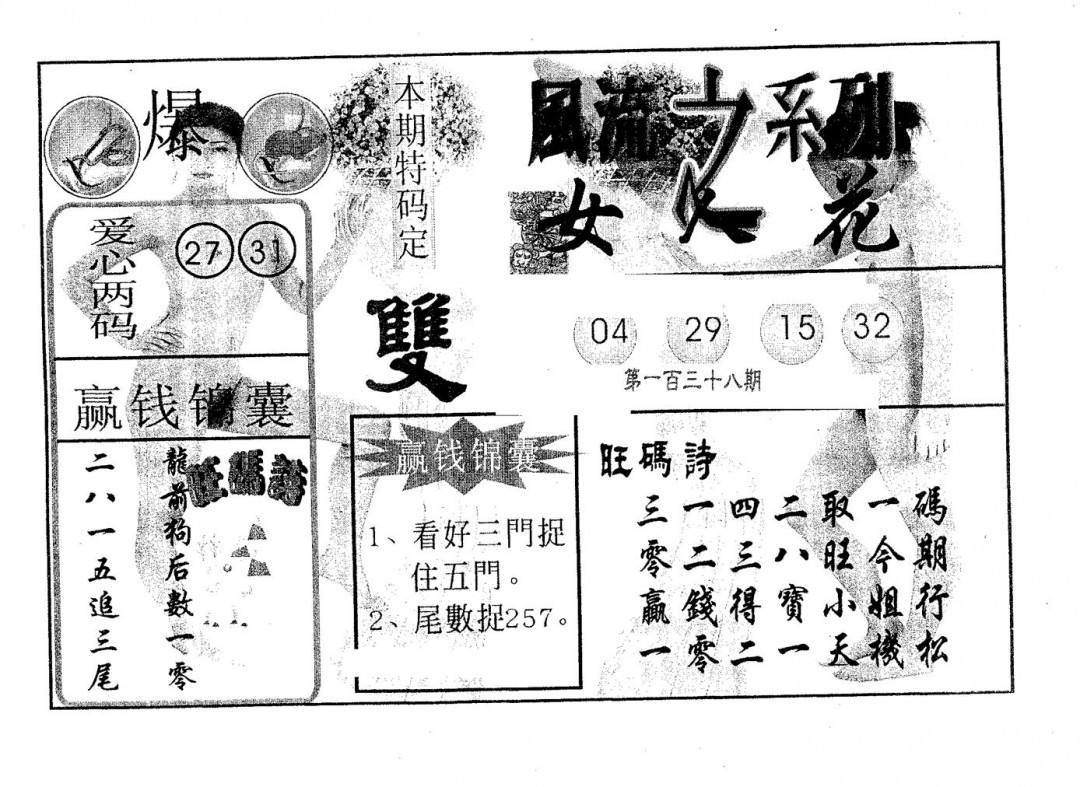 爆
爱心两码
27 31
赢钱锦囊
旺碼詩
龍前狗后數一零
二八一五追三尾
本期特码定
雙
赢钱锦囊
1、看好三門捉
住五門。
2、尾數捉257。
風流之系列
女人花
04 29 15 32
第一百三十八期
旺碼詩
三一四二取一碼
零二三八旺今期
赢錢得寶小姐行
一零二一天機松